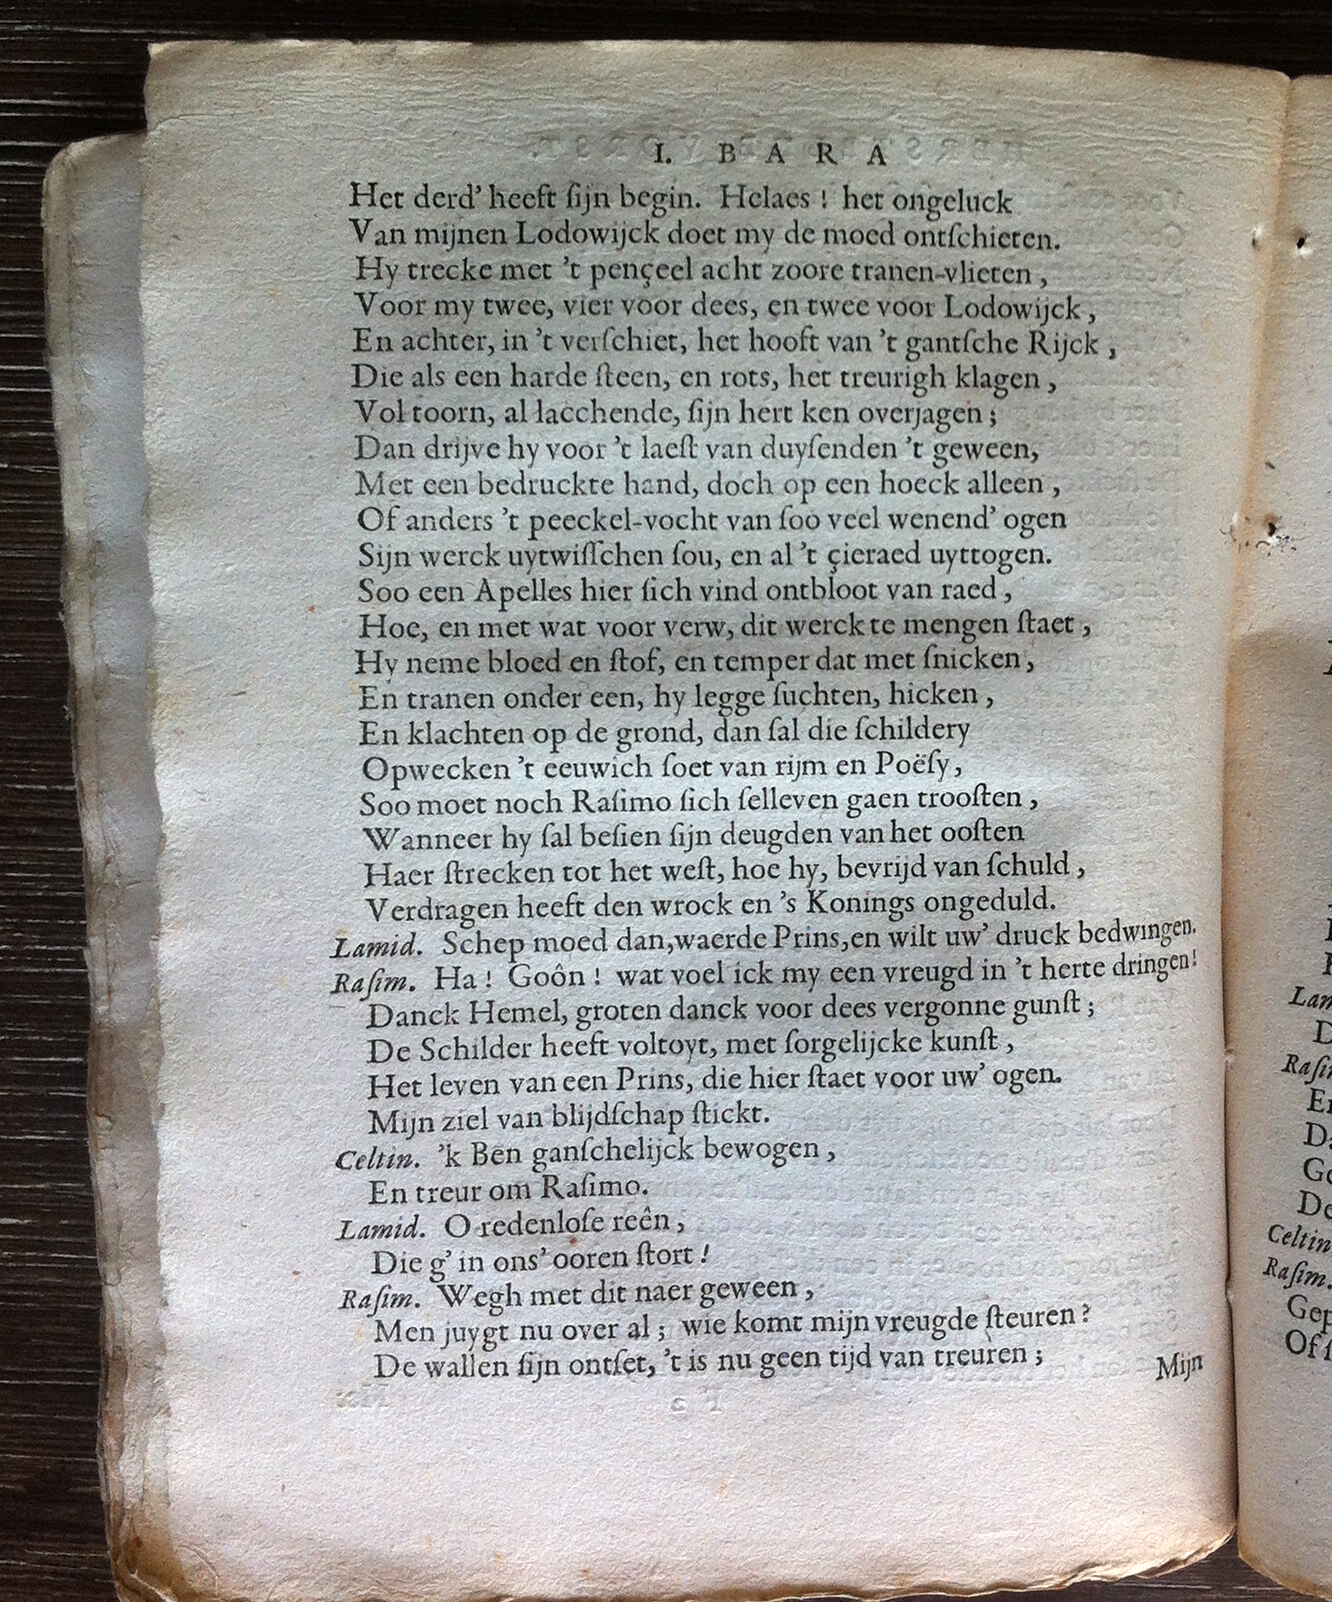 I. BARA
Het derd' heeft ſijn begin. Helaes! het ongeluck
Van mijnen Lodowijck doet my de moed ontſchieten.
Hy trecke met 't pençeel acht zoore tranen-vlieten,
Voor my twee, vier voor dees, en twee voor Lodowijck,
En achter, in 't verſchiet, het hooft van 't gantſche Rijck,
Die als een harde ſteen, en rots, het treurigh klagen,
Vol toorn, al lacchende, ſijn hert ken overjagen;
Dan drijve hy voor 't laeſt van duyſenden 't geween,
Met een bedruckte hand, doch op een hoeck alleen,
Of anders 't peeckel-vocht van ſoo veel wenend' ogen
Sijn werck uytwiſſchen ſou, en al 't çieraed uyttogen.
Soo een Apelles hier ſich vind ontbloot van raed,
Hoe, en met wat voor verw, dit werck te mengen ſtaet,
Hy neme bloed en ſtof, en temper dat met ſnicken,
En tranen onder een, hy legge ſuchten, hicken,
En klachten op de grond, dan ſal die ſchildery
Opwecken 't eeuwich ſoet van rijm en Poëſy,
Soo moet noch Raſimo ſich ſelleven gaen trooſten,
Wanneer hy ſal beſien ſijn deugden van het ooſten
Haer ſtrecken tot het weſt, hoe hy, bevrijd van ſchuld,
Verdragen heeft den wrock en 's Konings ongeduld.
Lamid. Schep moed dan, waerde Prins, en wilt uw' druck bedwingen.
Raſim. Ha! Goôn! wat voel ick my een vreugd in 't herte dringen!
Danck Hemel, groten danck voor dees vergonne gunſt;
De Schilder heeft voltoyt, met ſorgelijcke kunſt,
Het leven van een Prins, die hier ſtaet voor uw' ogen.
Mijn ziel van blijdſchap ſtickt.
Celtin. 'k Ben ganſchelijck bewogen,
En treur om Raſimo.
Lamid. O redenloſe reên,
Die g' in ons' ooren ſtort!
Raſim. Wegh met dit naer geween,
Men juygt nu over al; wie komt mijn vreugde ſteuren?
De wallen ſijn ontſet, 't is nu geen tijd van treuren;
Mijn
Lam
Raſim
Celtin
Raſim.